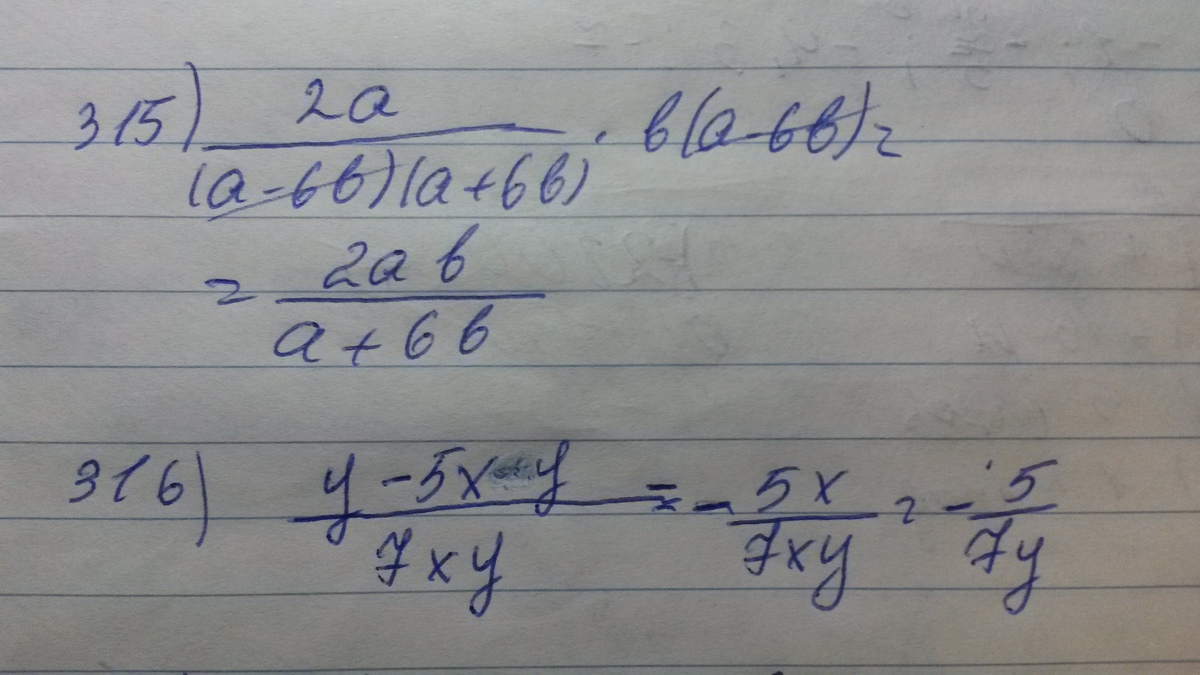 315) 2a / (a-6b)(a+6b) · b(a-6b) =
= 2ab / a+6b
316) y-5x-y / 7xy = - 5x / 7xy = - 5 / 7y